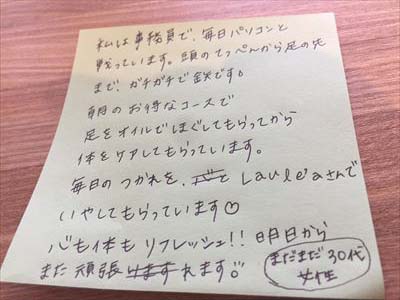 私は事務員で、毎日パソコンと
戦っています。頭のてっぺんから足の先
まで、ガチガチで鉄です。
朝のお得なコースで
足をオイルでほぐしてもらってから
体をケアしてもらっています。
毎日のつかれを、と Laule'aさんで
いやしてもらっています♡
心も体もリフレッシュ!! 明日から
また頑張けますれます。
まだまだ30代
女性